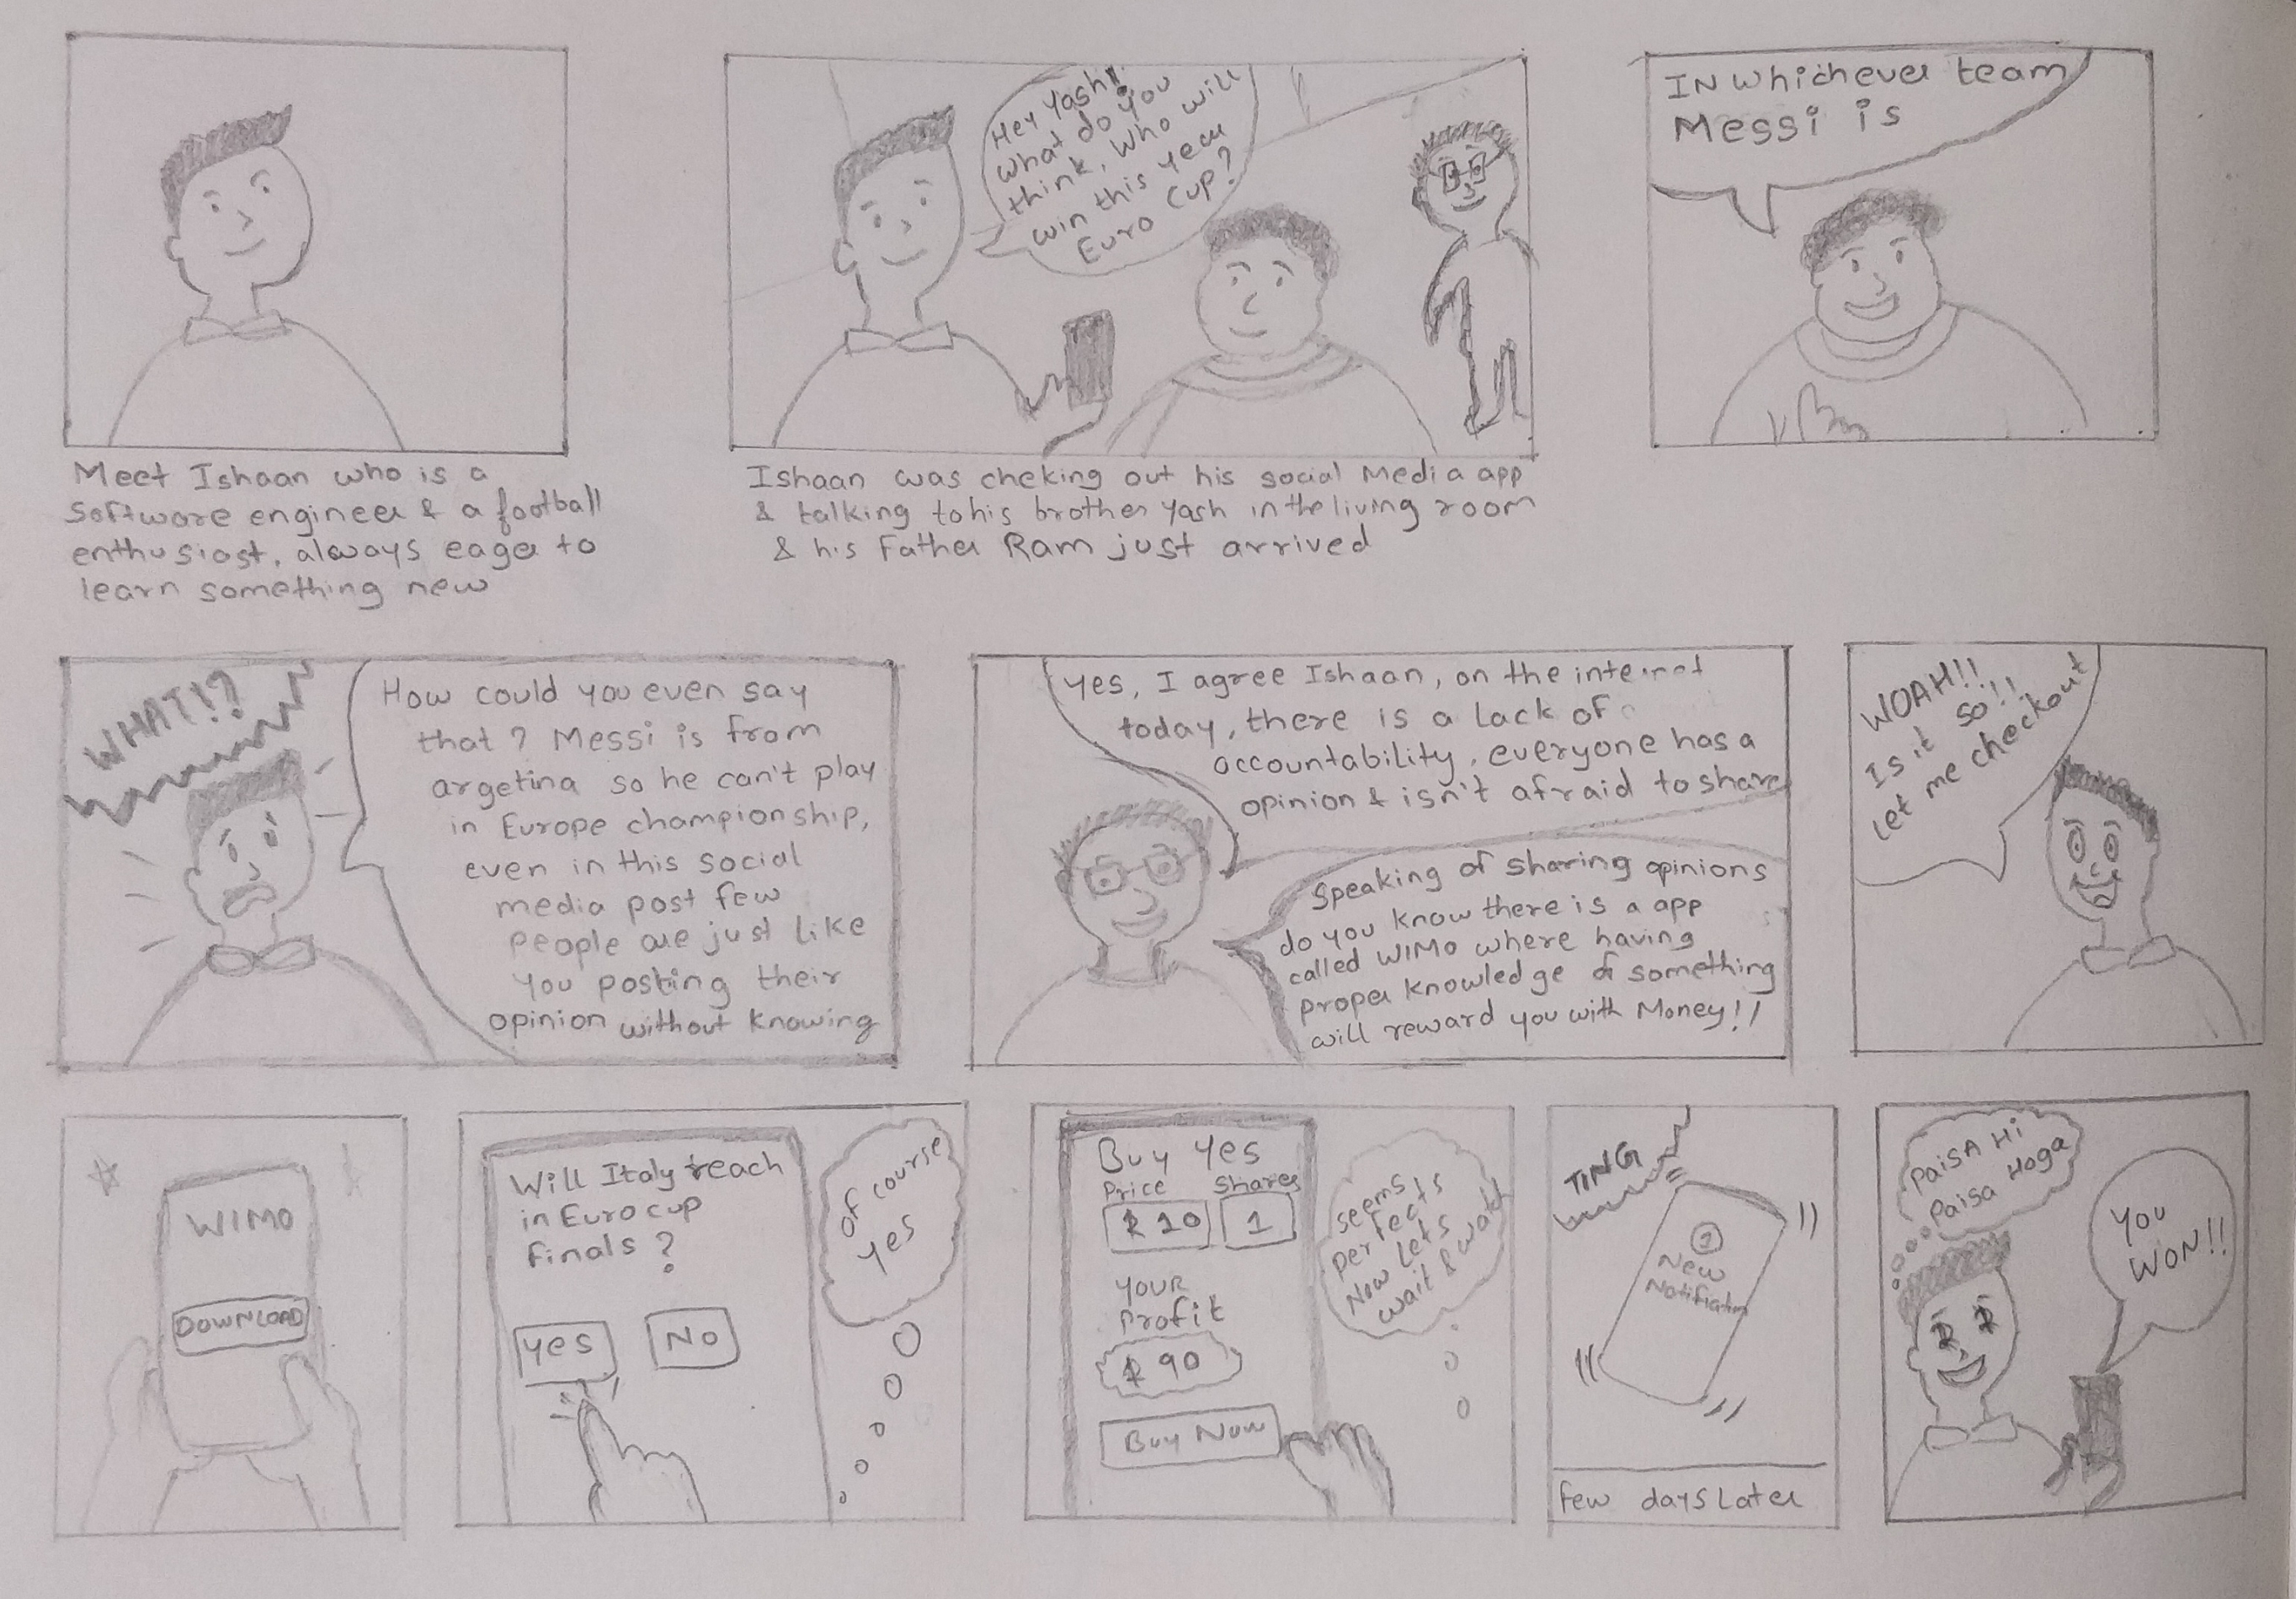 Meet Ishaan who is a
software engineer & a football
enthusiast, always eager to
learn something new
Hey Yash!!
what do you
think, Who will
win this year
Euro Cup?
Ishaan was cheking out his social media app
& talking to his brother Yash in the living room
& his Father Ram just arrived
IN whichever team
Messi is
WHAT!?
How could you even say
that? Messi is from
argetina so he can't play
in Europe championship,
even in this social
media post few
people are just like
you posting their
opinion without knowing
Yes, I agree Ishaan, on the internet
today, there is a lack of
accountability, everyone has a
opinion & isn't afraid to share
Speaking of sharing opinions
do you know there is a app
called WIMO where having
proper knowledge of something
will reward you with Money!!
WOAH!!
Is it so!!
Let me checkout
WIMO
DOWNLOAD
Will Italy reach
in Euro cup
finals?
Yes
No
Of course
yes
Buy Yes
Price Shares
₹ 10 1
YOUR
Profit
₹ 90
Buy Now
seems
perfects
Now Lets
wait & watch
TING
1
New
Notifiation
few days Later
PAISA Hi
Paisa Hoga
You
WON!!